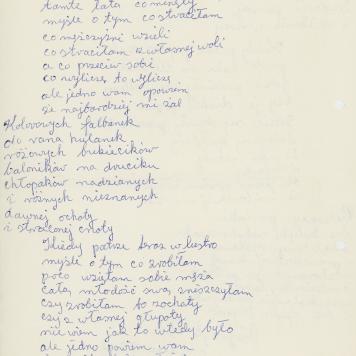 tamte lata co minęły
myślę o tym co straciłam
co mężczyźni wzieli
co straciłam z własnej woli
a co przeciw sobie
co wyliczę to wyliczę
ale jedno wam opowiem
że najbardziej mi żal
Kolorowych falbanek
do rana hulanek
różowych bukiecików
baloników na druciku
chłopaków nadzianych
i różnych nieznanych
dawnej ochoty
i straconej cnoty
Kiedy patrzę teraz w lustro
myślę o tym co zrobiłam
poco wzięłam sobie męża
całą młodość swą zniszczyłam
czy zrobiłam to z ochoty
czy z własnej głupoty
nie wiem jak to wtedy było
ale jedno powiem wam